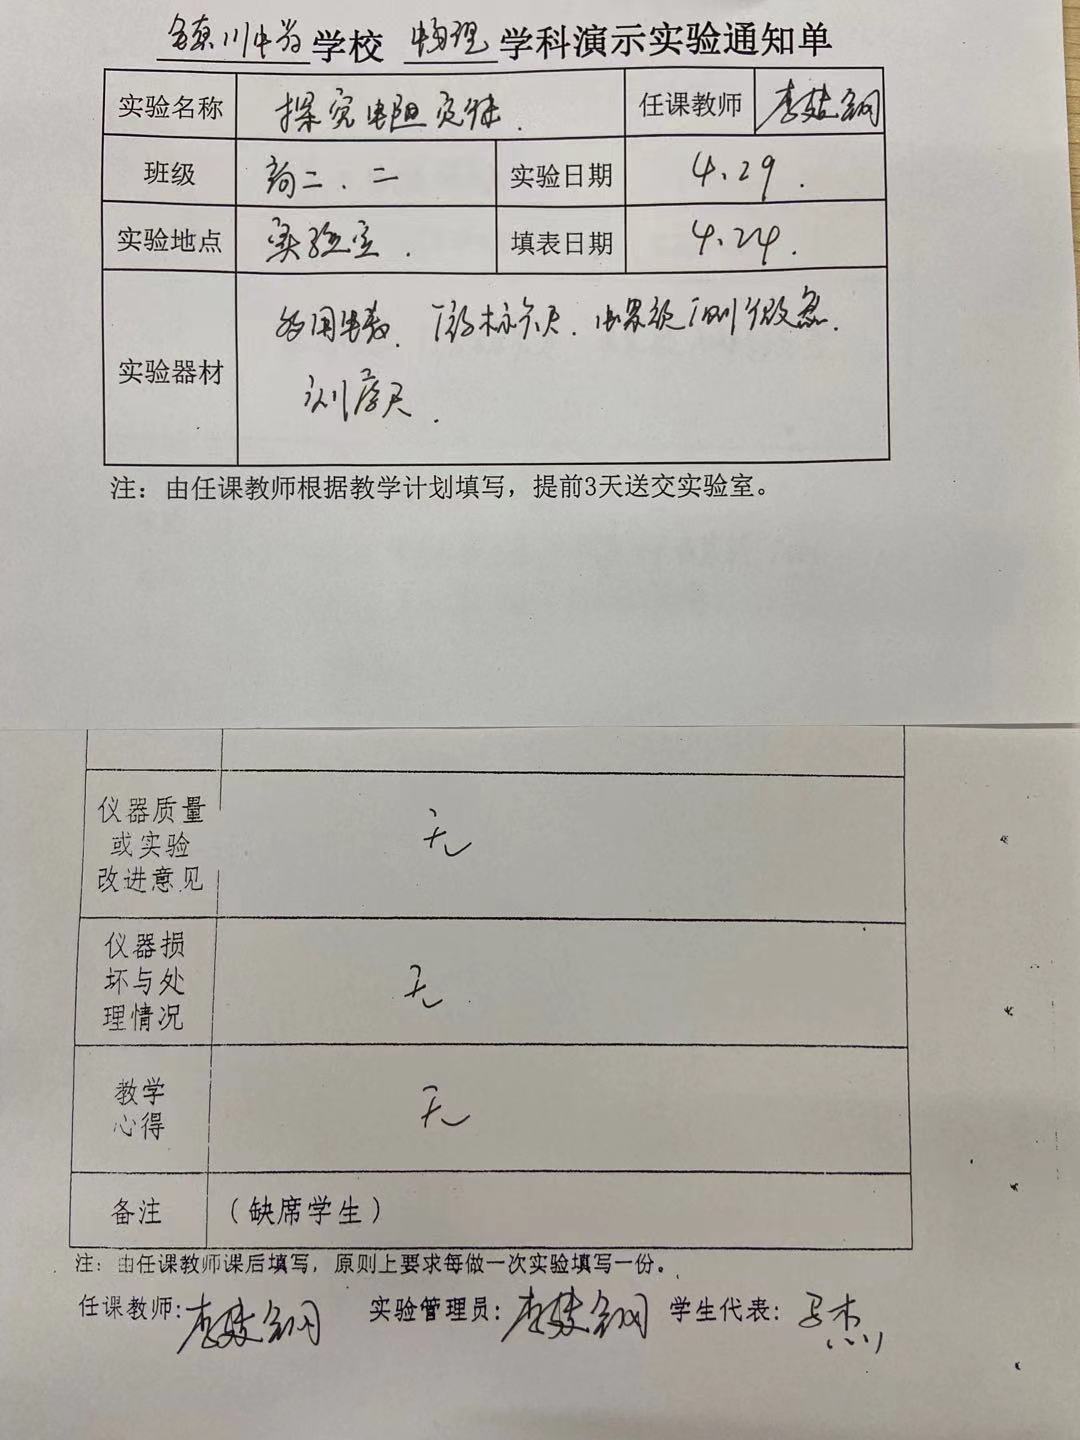 镇川中学学校 物理 学科演示实验通知单
实验名称 探究电阻定律. 任课教师 李建钢
班级 高二.二 实验日期 4.29.
实验地点 实验室. 填表日期 4.24.
实验器材 多用电表. 游标卡尺.
刻度尺.
注：由任课教师根据教学计划填写，提前3天送交实验室。
仪器质量
或实验
改进意见
无
仪器损
坏与处
理情况
无
教学
心得
无
备注 （缺席学生）
注：由任课教师课后填写，原则上要求每做一次实验填写一份。
任课教师: 李建钢 实验管理员: 李建钢 学生代表: 马杰